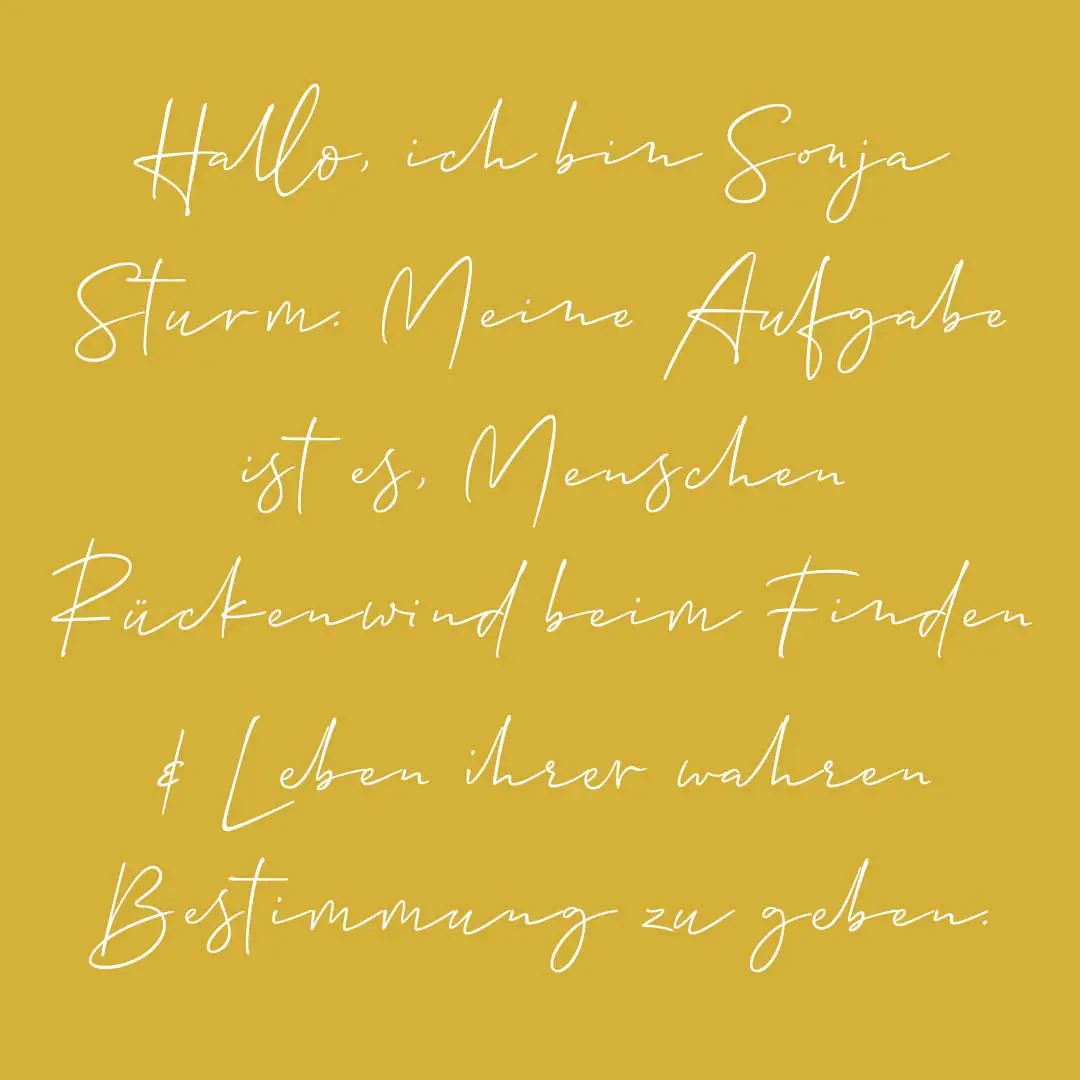 Hallo, ich bin Sonja
Sturm. Meine Aufgabe
ist es, Menschen
Rückenwind beim Finden
& Leben ihrer wahren
Bestimmung zu geben.